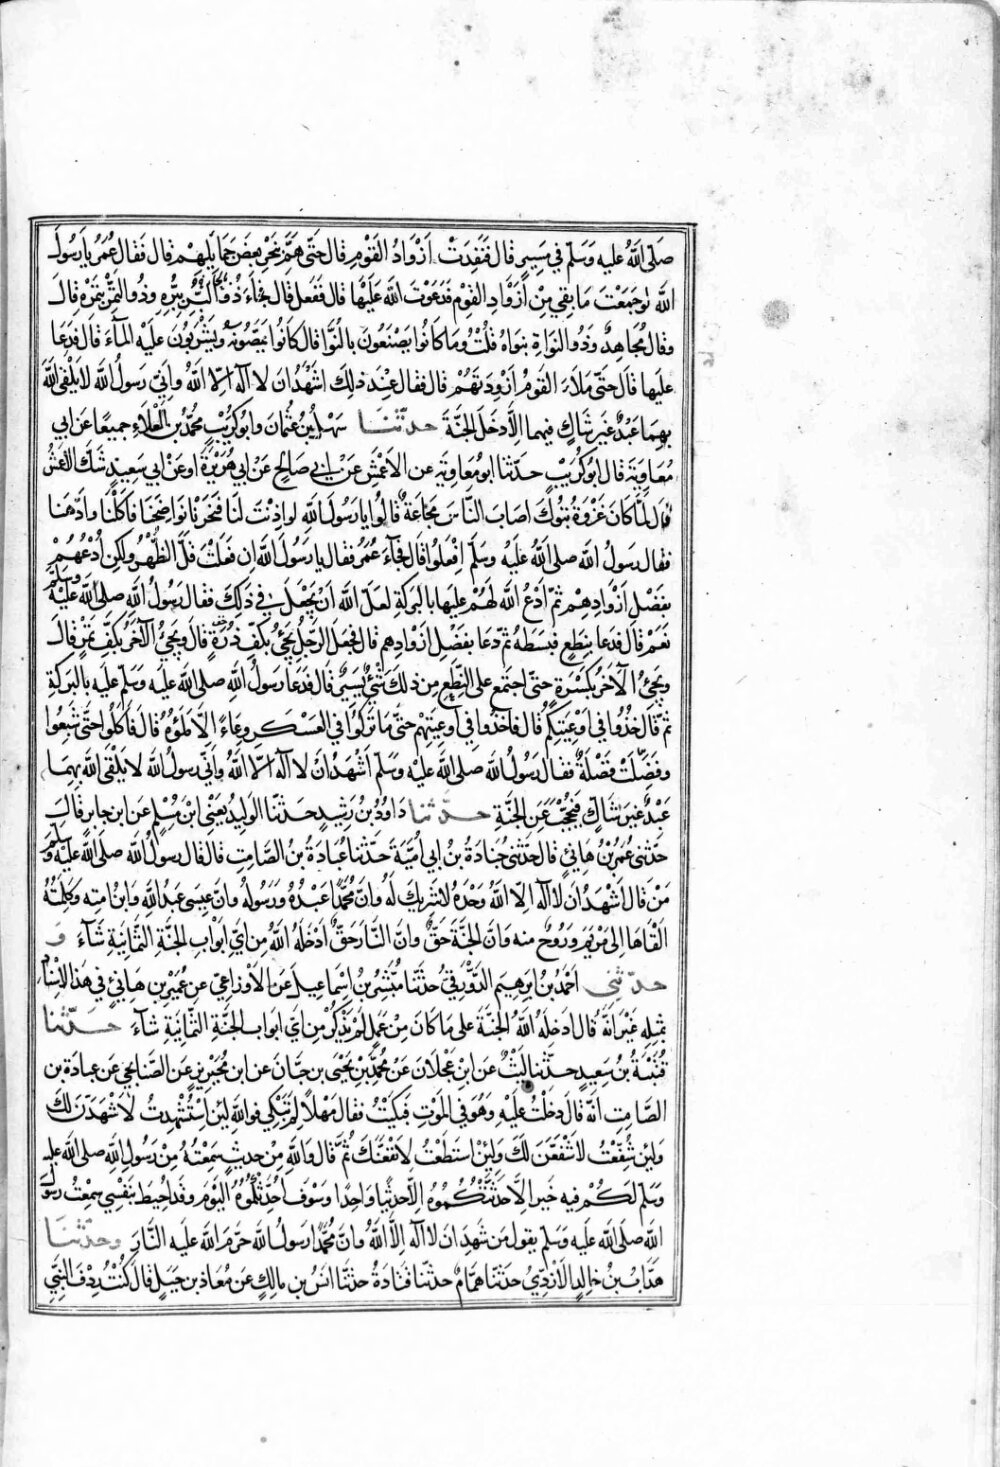 صَلى اللهُ عليه وَسَلم في مَسِيرٍ قال فَنَفِدَتْ أزْوَادُ القَوْمِ قال حَتى هَمَّ بنَحْرِ بعض حَمَايلهم قال فَقال عُمَرُ يا رَسُولَ
الله لو جَمَعْتَ مَا بَقِي مِنْ أزْوَادِ القَوْم فدَعَوْتَ اللهَ عَلَيْهَا قال فَفَعل قال فجاءَ ذُو البُرِّ ببُرِّهِ وذُو التمْرِ بتَمْرِهِ قال
وقال مُجَاهِدٌ وذُو النَوَاةِ بنواهُ قُلْتُ ومَا كانوا يَصْنَعُونَ بالنَّوَا قال كَانُوا يَمَصُّونهُ ويَشْرَبُونَ عَلَيْه الماءَ قال فدَعَا
عليها قال حَتى مَلأ القَوْمُ أزْوِدَتَهُمْ قال فقال عِنْدَ ذلك اشهَدُ ان لا اله الا اللهُ وأني رَسُولُ الله لا يَلْقى اللهَ
بهِمَا عَبْدٌ غَيرَ شَاكٍ فيهما الا دَخَلَ الجنَّةَ حدثنا سَهْلُ بنُ عُثْمَانَ وابو كُرَيْبٍ مُحَمَّدُ بن العَلاءِ جميعًا عن ابي
مُعَاوِيَةَ قال ابو كُرَيْبٍ حدّثنا ابو مُعَاوِيَةَ عن الاعْمَشِ عَنْ ابي صَالحٍ عَنْ ابي هُرَيْرَةَ او عَنْ ابي سَعِيدٍ شَكَّ الاعْمَشُ
قال لمّا كانَ غَزْوَةُ تبُوكَ اصَابَ الناسَ مَجَاعَةٌ قالُوا يا رَسُولَ الله لو اذِنْتَ لنَا فنَحَرْنَا نَوَاضِحَنَا فَاكَلْنَا وادّهَنا
فقال رَسُولُ الله صلى اللهُ عَلَيْهِ وسَلّم افْعَلُوا قال فجاءَ عُمَرُ فقال يا رَسُولَ الله ان فَعَلْتَ قَلَّ الظَّهْرُ ولكِنِ ادْعُهُمْ
بفَضْلِ ازْوَادِهِمْ ثمّ ادْعُ الله لَهُم عليها بالبَرَكةِ لعَلّ الله انْ يَجْعَلَ في ذَلِكَ فقال رَسُولُ الله صلى الله عليه وسلم
نعَمْ قال فدَعا بنِطَعٍ فبَسَطَهُ ثمّ دَعا بفَضْلِ ازْوَادِهِم قال فجعَلَ الرَجُلُ يجيُ بكَفِّ ذُرَةٍ قال ويجيُ الآخَرُ بكَفِّ تَمْرٍ قال
ويجيُ الآخَرُ بكَسْرَةٍ حتى اجتمع على النِّطَعِ مِن ذلك شَيءٌ يَسِيرٌ قال فَدَعَا رَسُولُ اللهِ صلى الله عليه وسَلم عليه بالبَركَةِ
ثمّ قال خُذُوا في اوْعِيَتِكُمْ قال فاَخَذُوا في أوعِيَتِهِمْ حتى مَا تركُوا في العَسْكَرِ وِعَاءً الاّ مَلؤُهُ قال فاكلُوا حتى شَبِعُوا
وفَضِلَتْ فَضْلَةٌ فقال رَسُولُ الله صَلى الله عليْه وسَلم اَشْهَدُ انْ لا اله الا اللهُ وأني رَسُولُ الله لا يَلْقى الله بهِمَا
عَبْدٌ غيرَ شَاكٍ فيُحْجَبَ عَنِ الجنّةِ حدثنا دَاوُدُ بنُ رَشِيدٍ حَدثنَا الوَلِيدُ يَعْنِي ابْنَ مُسْلِمٍ عَنِ ابن جابِرٍ قال
حَدثني عُمَيْرُ بْنُ هَانِئٍ قال حَدّثني جُنَادَةُ بنُ ابي اُمَيّةَ حَدّثنا عُبَادَةُ بنُ الصّامِتِ قال قال رسولُ الله صلى الله عليه وسلم
مَنْ قال اشْهَدُ ان لا اله الا اللهُ وَحْدَهُ لا شَرِيكَ لَهُ وانّ مُحمّدًا عَبْدُهُ وَرَسُولُه وانّ عِيسَى عَبْدُ الله وَابنُ امَتِه وكَلِمَتُهُ
القَاهَا إلى مَرْيَم ورُوحٌ منه وانّ الجنّةَ حَقٌّ وانّ النَّارَ حَقٌّ ادْخَلَهُ اللهُ مِن ايِّ ابْوَابِ الجنَّةِ الثَّمَانِيَةِ شَاءَ و
حدثني احْمَدُ بْنُ إبْرَهِيمَ الدَّوْرَقِيُّ حَدّثنَا مُبَشِرُ بْنُ اِسْمَاعِيلَ عَنِ الاوْزَاعِيّ عن عُمَيْرِ بن هَانِئٍ في هَذا الاِسْنَادِ
بمثْلِه غَيْرَ انّهُ قال ادخلَهُ اللهُ الجنّةَ على مَا كانَ مِنْ عَمَلٍ ولم يَذْكُرْ مِنْ ايّ ابوابِ الجنّةِ الثّمانيَةِ شاءَ حدثنا
قُتَيْبَةُ بنُ سَعِيدٍ حدّثنا لَيْثٌ عَنِ ابْنِ عَجْلاَنَ عَنْ مُحمّدِ بْنِ يَحْيَى بن حَبَّانَ عن ابن مُحَيْرِيزٍ عَنِ الصّنَابحيِ عن عبادةَ بن
الصَّامِتِ انهُ قال دَخلْتُ عليْهِ وهُو في المَوْتِ فبَكَيْتُ فقال مَهْلاً لمَ تَبْكِي فوالله لَئِنِ اسْتُشْهِدْتُ لاشْهَدَنّ لكَ
ولئن شُفِّعْتُ لاشْفَعَنَّ لَكَ ولَئِنْ استَطَعْتُ لانْفَعَنّكَ ثُمّ قال والله مَا مِنْ حديثٍ سَمِعْتُهُ مِنْ رَسُولِ الله صلى الله عليه
وسَلّم لَكُمْ فيه خَير الا حَدّثْتُكُمُوهُ الا حدِيثًا واحدًا وسَوْفَ احدِّثُكُمُوهُ اليَوْمَ وقد احِيطَ بنَفْسِي سمعْتُ رسولَ
الله صَلى الله عليه وَسَلم يقولُ مَن شَهِدَ ان لا اله الا اللهُ وانّ مُحمّدًا رسولُ الله حَرّمَ الله عليه النّارَ وحدثنا
هَدّابُ بنُ خالِدٍ الازْدِيُّ حدثنَا هَمّامٌ حدثنا قتَادَةُ حدثنا انَسُ بن مالِكٍ عَن مُعَاذِ بن جَبَلٍ قال كُنْتُ رِدْفَ النَّبِيِّ